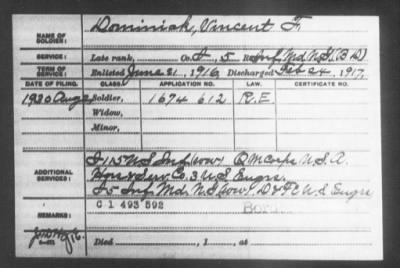 NAME OF SOLDIER: Dominiak, Vincent F.
SERVICE: Late rank, Co. F, 5 Reg. Inf. Md. N.G. (B D)
TERM OF SERVICE: Enlisted June 21, 1916, Discharged Feb 24, 1917,
DATE OF FILING. CLASS. APPLICATION NO. LAW. CERTIFICATE NO.
1930 Aug 2 Soldier, 1674 612 R.E.
Widow,
Minor,
ADDITIONAL SERVICES: F 115 U S Inf (WW) Q M Corps U.S.A.
Hqrs & Serv Co. 3 U S Engrs.
F 5 Inf. Md. N.G. (WW) D & F U S Engrs
REMARKS: C 1 493 592
Died , 1 , at